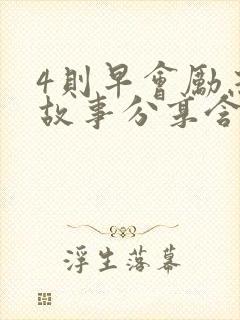 4則早會勵志
故事分享含
浮生落幕